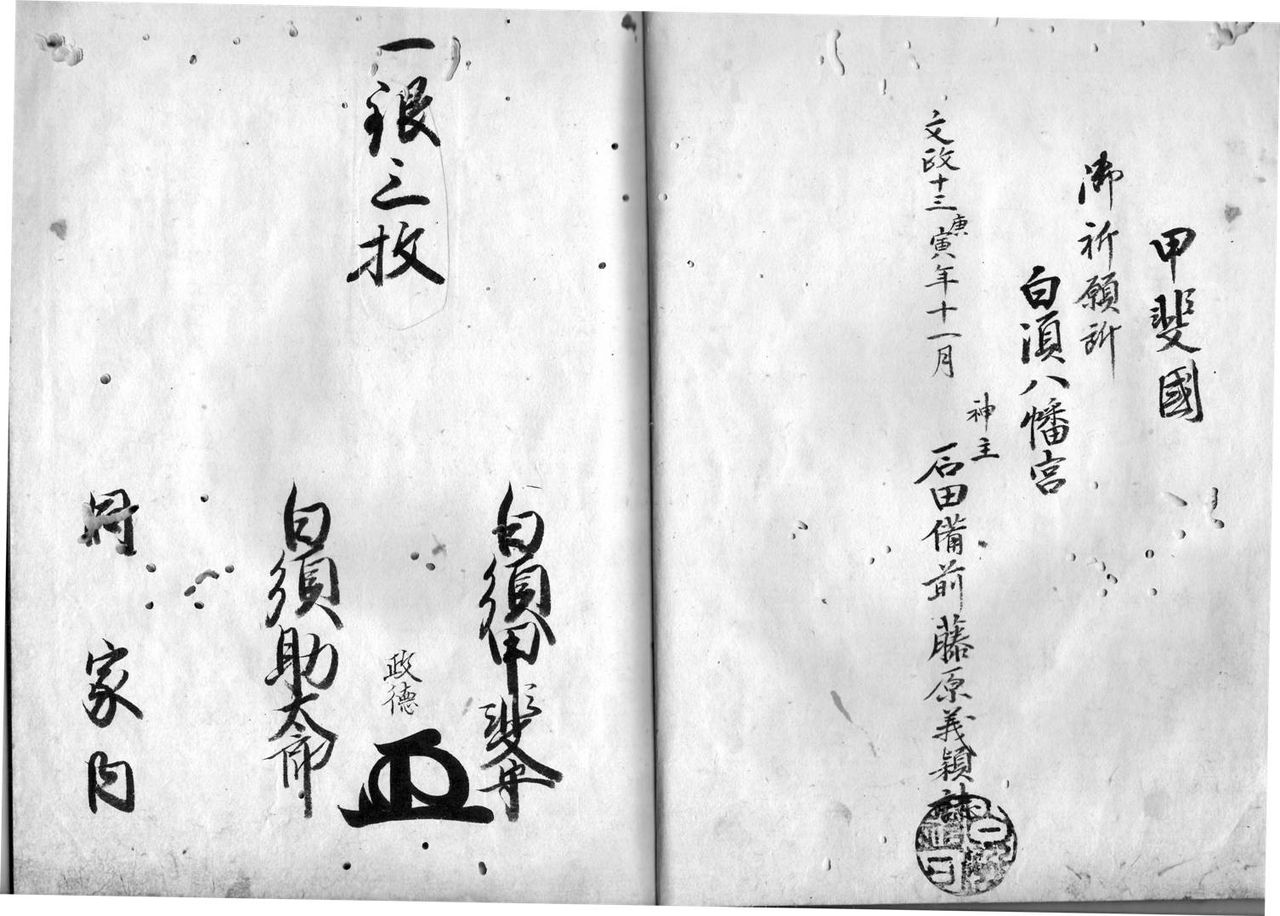 甲斐國
御祈願所
白須八幡宮
神主
文政十三庚寅年十一月
石田備前藤原義穎
一銀三枚
白須甲斐守
政徳
白須助太郎
同 家内